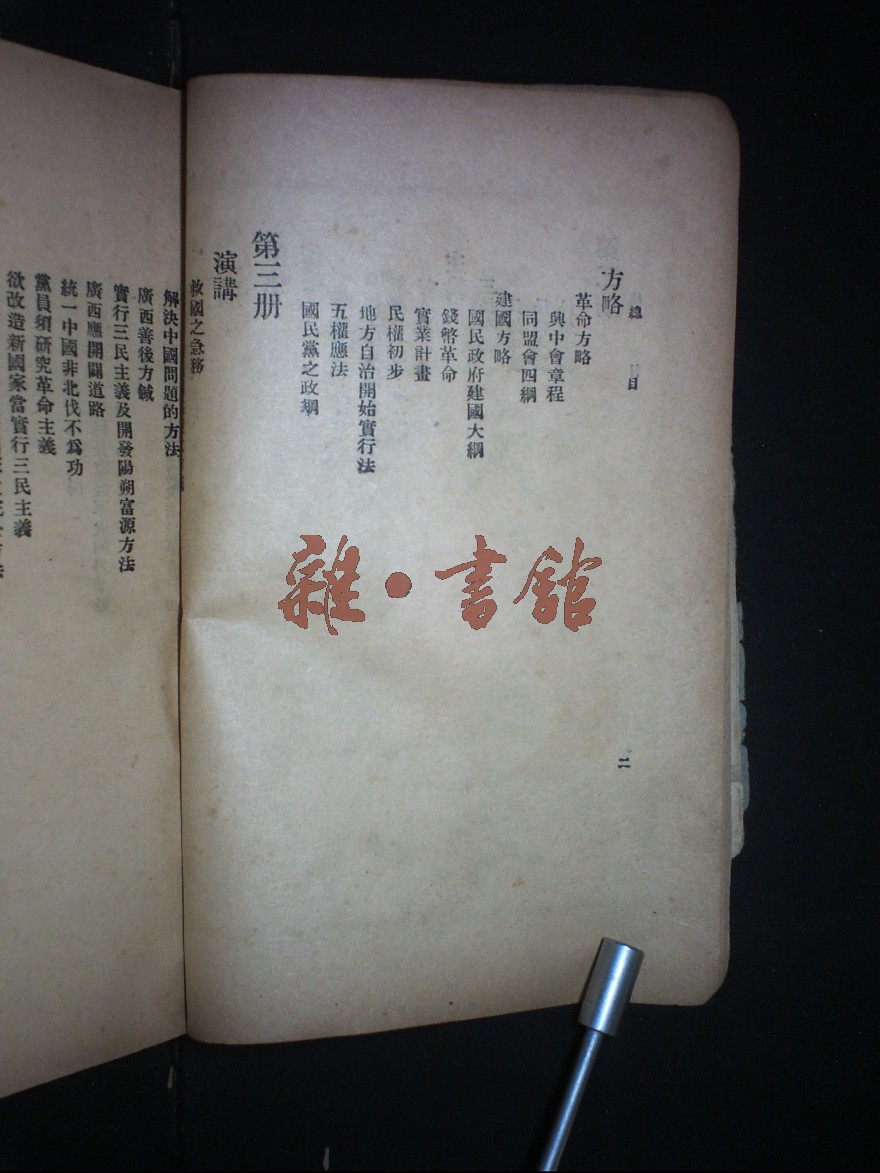 總目
二
方略
革命方略
興中會章程
同盟會四綱
建國方略
國民政府建國大綱
錢幣革命
實業計畫
民權初步
地方自治開始實行法
五權應法
國民黨之政綱
第三册
演講
救國之急務
解決中國問題的方法
廣西善後方鍼
實行三民主義及開發陽朔富源方法
廣西應開闢道路
統一中國非北伐不爲功
黨員須研究革命主義
欲改造新國家當實行三民主義
雜·書館